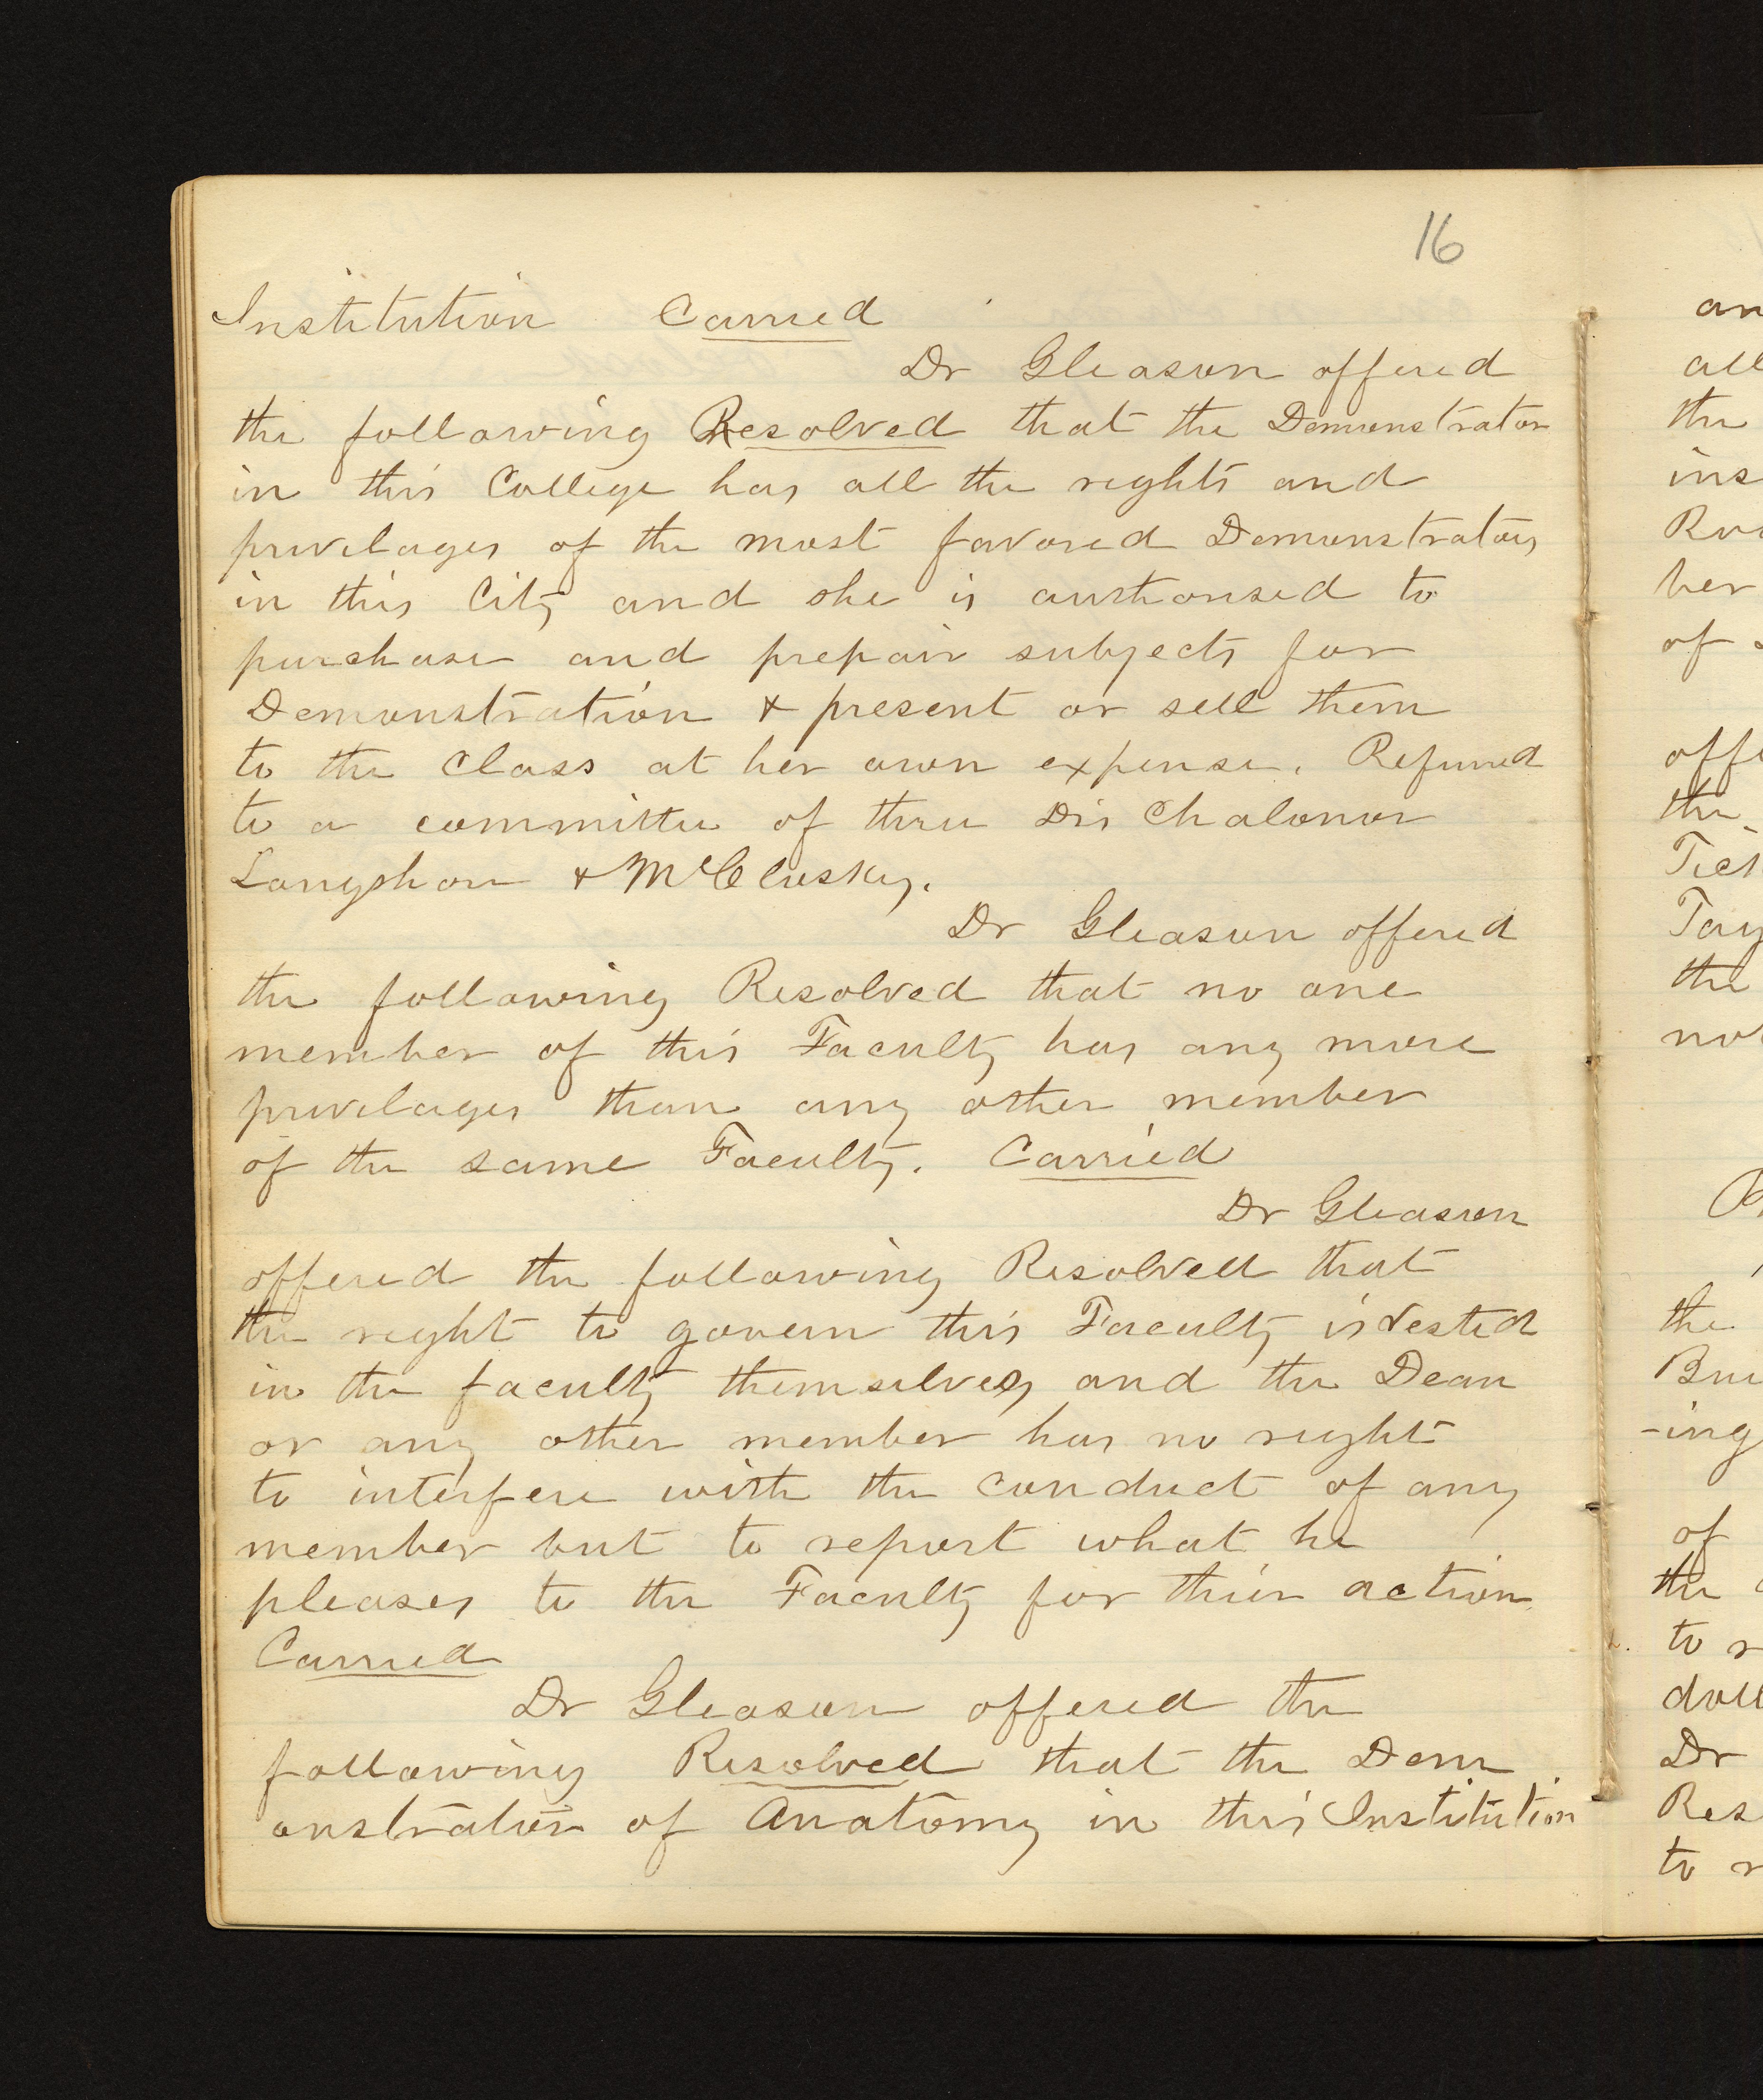 16
Institution Carried
Dr Gleason offered
the following Resolved that the Demonstrator
in this College has all the rights and
privilages of the most favored Demonstrators
in this City and she is authorised to
purchase and prepair subjects for
Demonstration & present or sell them
to the Class at her own expense. Referred
to a committee of three Drs Chaloner
Longshore & McClusky.
Dr Gleason offered
the following Resolved that no one
member of this Faculty has any more
privilages than any other member
of the same Faculty. Carried
Dr Gleason
offered the following Resolved that
the right to govern this Faculty is vested
in the faculty themselves and the Dean
or any other member has no right
to interfere with the conduct of any
member but to report what he
pleases to the Faculty for their action
Carried
Dr Gleason offered the
following Resolved that the Dem
onstrator of Anatomy in this Institution
an
all
the
ins
her
of
offe
the
the
the
-ing
of
the
to
Dr
Res
to